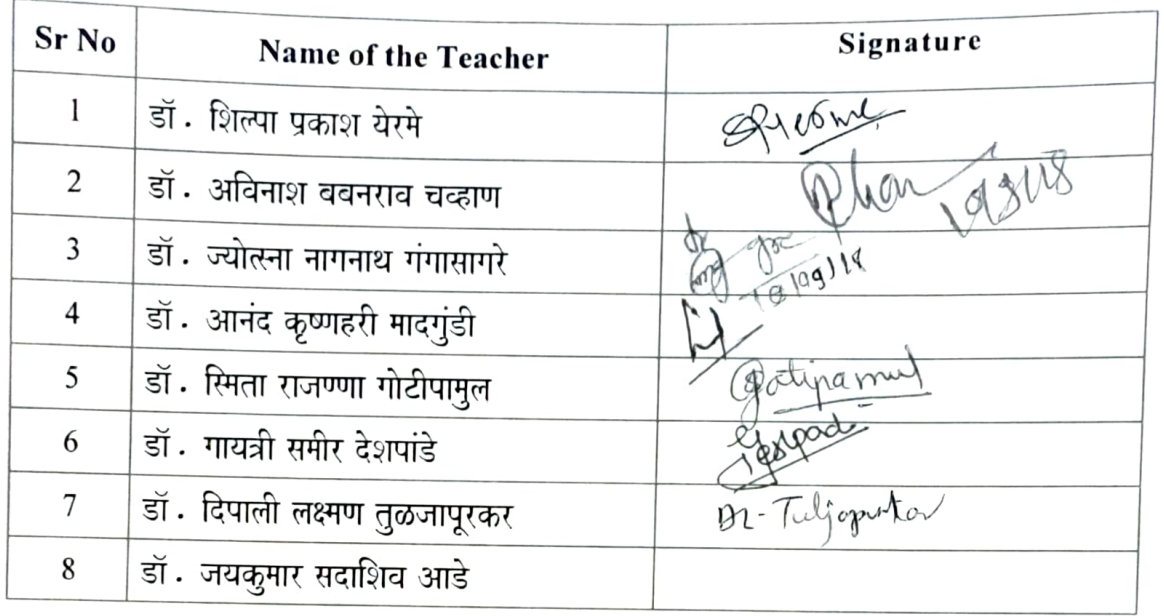 Sr No Name of the Teacher Signature
1 डॉ. शिल्पा प्रकाश येरमे
2 डॉ. अविनाश बबनराव चव्हाण
3 डॉ. ज्योत्स्ना नागनाथ गंगासागरे
4 डॉ. आनंद कृष्णहरी मादगुंडी
5 डॉ. स्मिता राजण्णा गोटीपामुल Gotipamul
6 डॉ. गायत्री समीर देशपांडे
7 डॉ. दिपाली लक्ष्मण तुळजापूरकर Dr- Tuljapurkar
8 डॉ. जयकुमार सदाशिव आडे